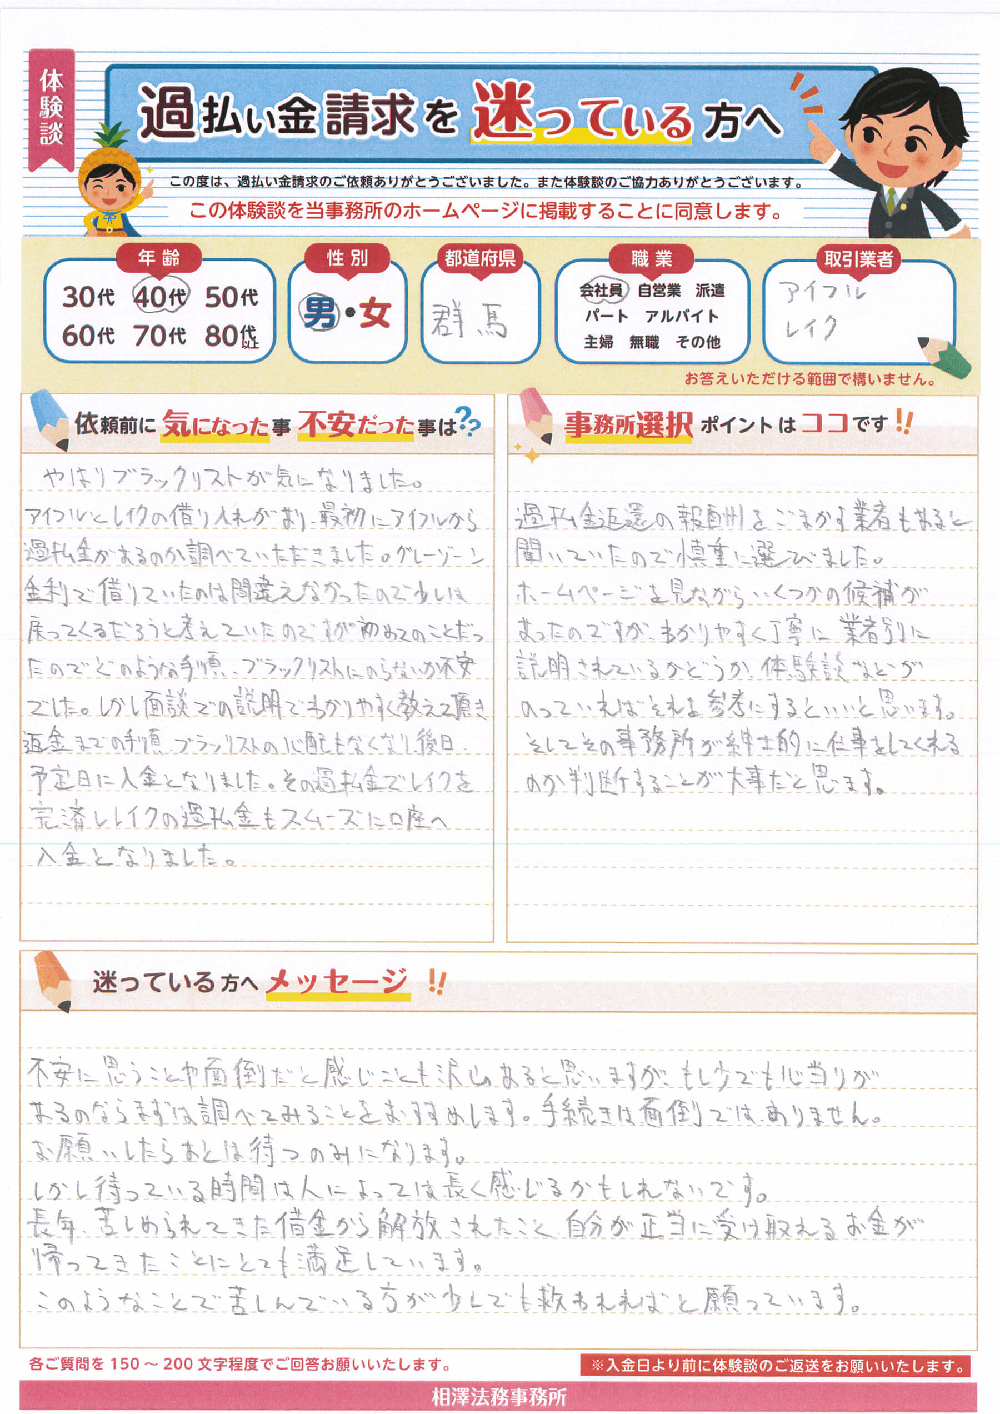 体験談
過払い金請求を迷っている方へ
この度は、過払い金請求のご依頼ありがとうございました。また体験談のご協力ありがとうございます。
この体験談を当事務所のホームページに掲載することに同意します。
年齢
30代 40代 50代
60代 70代 80代以上
性別
男・女
都道府県
群馬
職業
会社員 自営業 派遣
パート アルバイト
主婦 無職 その他
取引業者
アイフル
レイク
お答えいただける範囲で構いません。
依頼前に気になった事不安だった事は??
やはりブラックリストが気になりました。
アイフルとレイクの借り入れがあり、最初にアイフルから
過払金があるのか調べていただきました。グレーゾーン
金利で借りていたのは間違えなかったので少しは
戻ってくるだろうと考えていたのですが初めてのことだっ
たのでどのような手順、ブラックリストにのらないか不安
でした。しかし面談での説明でわかりやすく教えて頂き
返金までの手順、ブラックリストの心配もなくなり後日、
予定日に入金となりました。その過払金でレイクを
完済しレイクの過払金もスムーズに口座へ
入金となりました。
事務所選択ポイントはココです!!
過払金返還の報酬をごまかす業者もあると
聞いていたので慎重に選びました。
ホームページを見ながらいくつかの候補が
あったのですが、わかりやすく丁寧に業者別に
説明されているかどうか、体験談などが
のっていればそれも参考にするといいと思います。
そしてその事務所が紳士的に仕事をしてくれる
のか判断することが大事だと思います。
迷っている方へメッセージ!!
不安に思うことや面倒だと感じことも沢山あると思いますが、もし少しでも心当りが
あるのならまずは調べてみることをおすすめします。手続きは面倒ではありません。
お願いしたらあとは待つのみになります。
しかし待っている時間は人によっては長く感じるかもしれないです。
長年、苦しめられてきた借金から解放されたこと、自分が正当に受け取れるお金が
帰ってきたことにとても満足しています。
このようなことで苦しんでいる方が少しでも救われればと願っています。
各ご質問を150～200文字程度でご回答お願いいたします。
※入金日より前に体験談のご返送をお願いいたします。
相澤法務事務所